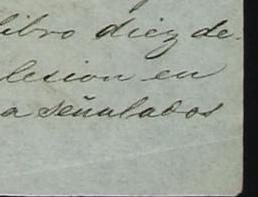 libro diez de-
lesion en
a señalados